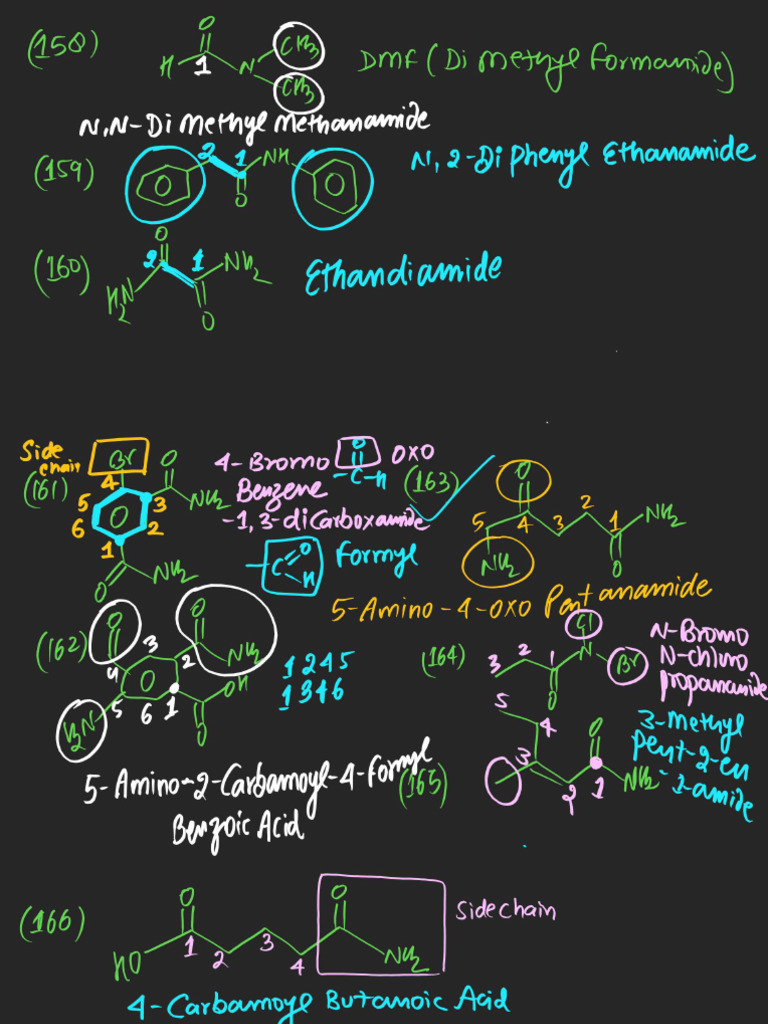 (158) O H 1 N CH3 CH3 DMF (Di methyl formamide)
N,N-Di Methyl Methanamide
(159) 2 1 NH O N, 2-Diphenyl Ethanamide
(160) O 2 1 NH2 H2N O Ethandiamide
Side chain Br 4-Bromo O -C-H oxo
(161) 4 5 6 3 2 1 O NH2 Benzene
-1,3-diCarboxamide
O NH2
-C O H Formyl
(163) O 5 4 3 2 1 NH2 NH2 O
5-Amino-4-oxo Pentanamide
(162) O O NH2 3 4 2 5 6 1 OH O H2N
1 2 4 5
1 3 4 6
5-Amino-2-Carbamoyl-4-formyl
Benzoic Acid
(164) 3 2 1 O N Cl Br N-Bromo
N-chloro
propanamide
(165) 5 4 3 2 1 O NH2 3-Methyl
pent-2-en
-1-amide
(166) O HO 1 2 3 4 O NH2 Side Chain
4-Carbamoyl Butanoic Acid